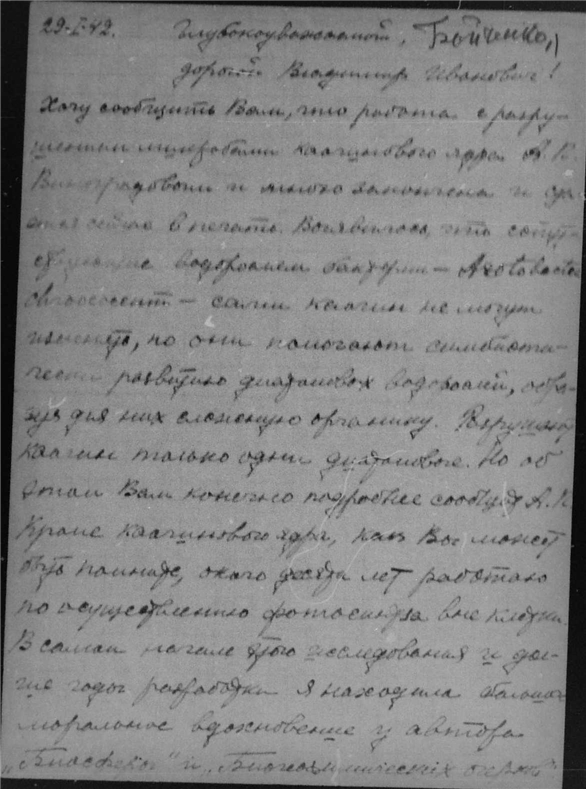 29-I-42. Глубокоуважаемый, Бойченко
дорогой Владимир Иванович!
Хочу сообщить Вам, что работа с разру-
шением микробами каолинового ядра А. П.
Виноградовым и мною закончена и сда-
ется сейчас в печать. Выявилось, что сопут-
ствующие водорослям бактерии — Azotobacter
chroococcum — сами каолин не могут
изменять, но они помогают симбиоти-
чески развитию диатомовых водорослей, обра-
зуя для них сложную органику. Разрушают
каолин только одни диатомовые. Но об
этом Вам конечно подробнее сообщит А. П.
Кроме каолинового ядра, как Вы может
быть помните, около десяти лет работаю
по осуществлению фотосинтеза вне клетки.
В самом начале этого исследования и дол-
гие годы разработки я находила большое
моральное вдохновение у автора
„Биосферы" и „Биогеохимических очерков"